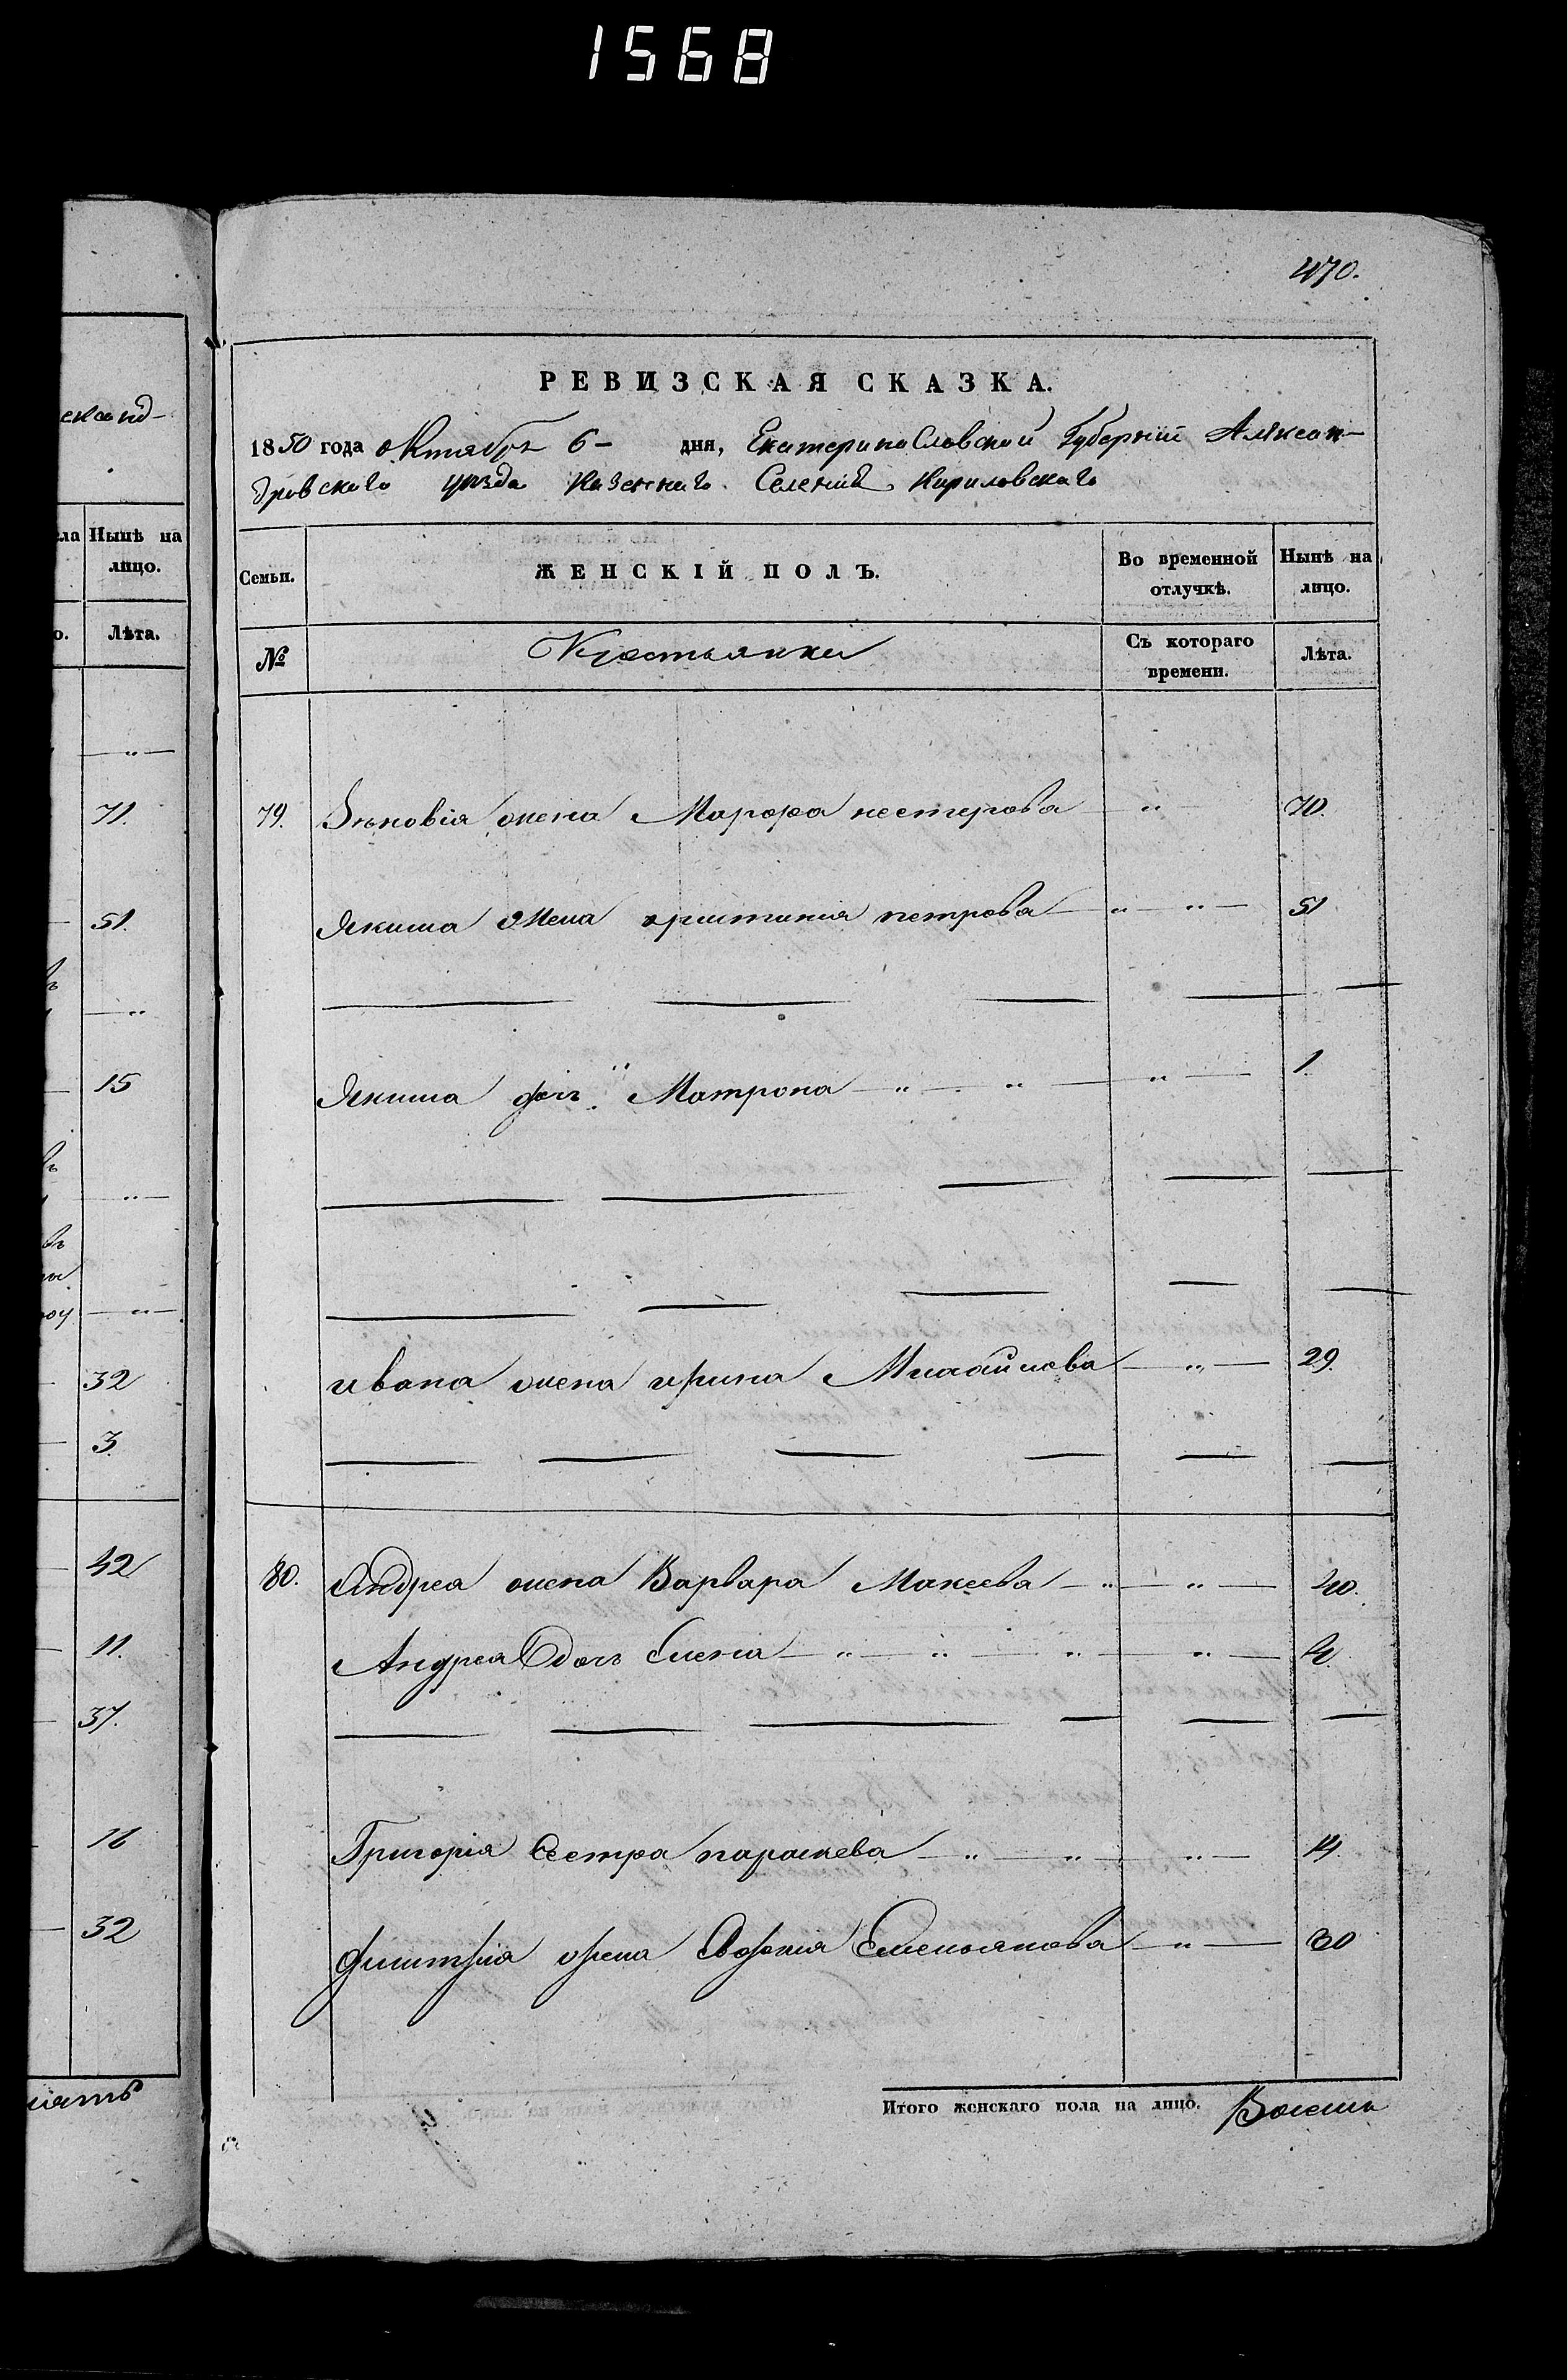 1568
470.
РЕВИЗСКАЯ СКАЗКА.
1850 года октября 6 – дня, Екатеринославской Губерніи Алексан-
дровского уезда Казенного Селенія Кириловского
Семьи.
ЖЕНСКІЙ ПОЛЪ.
Во временной отлучкѣ.
Нынѣ на лицо.
№
Крестьянки
Съ котораго времени.
Лѣта.
79. жена Марфа нестерова — " — 70.
Якима жена христина петрова — " — " — 51
Якима доч. Матрона — " — " — " — 1.
ивана жена ирина Михайлова — " — 29.
80. Андрея жена Варвара Макеева — " — " — 40.
Андрея доч Елена — " — " — " — " — 4.
Григорія Сестра параскева — " — " — " — 14.
Дмитрія жена Софиія Емельянова — " — 30
Итого женскаго пола на лицо. Восемь
еканд-
ла
Нынѣ на лицо.
о.
Лѣта.
71.
51.
15
32
3.
42
11.
37.
16
32